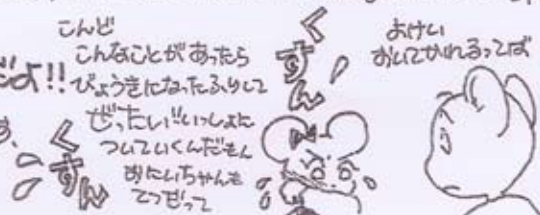 こんど
こんなことがあったら
びょうきになったふりして
ぜったい!!いっしょに
ついていくんだもん
おにいちゃんも
てつだって
くすん
くすん
よけい
おいてかれるってば
だよ!!